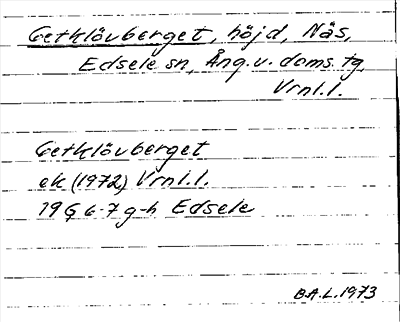 Getklövberget, höjd, Näs,
Edsele sn, Ång.v. doms. tg,
Vrnl.l.
Getklövberget
ek (1972) Vrnl.l.
19G 6-7 g-h Edsele
B.A.L. 1973